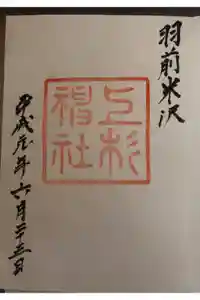 羽前米沢
上杉神社
平成元年六月二十五日